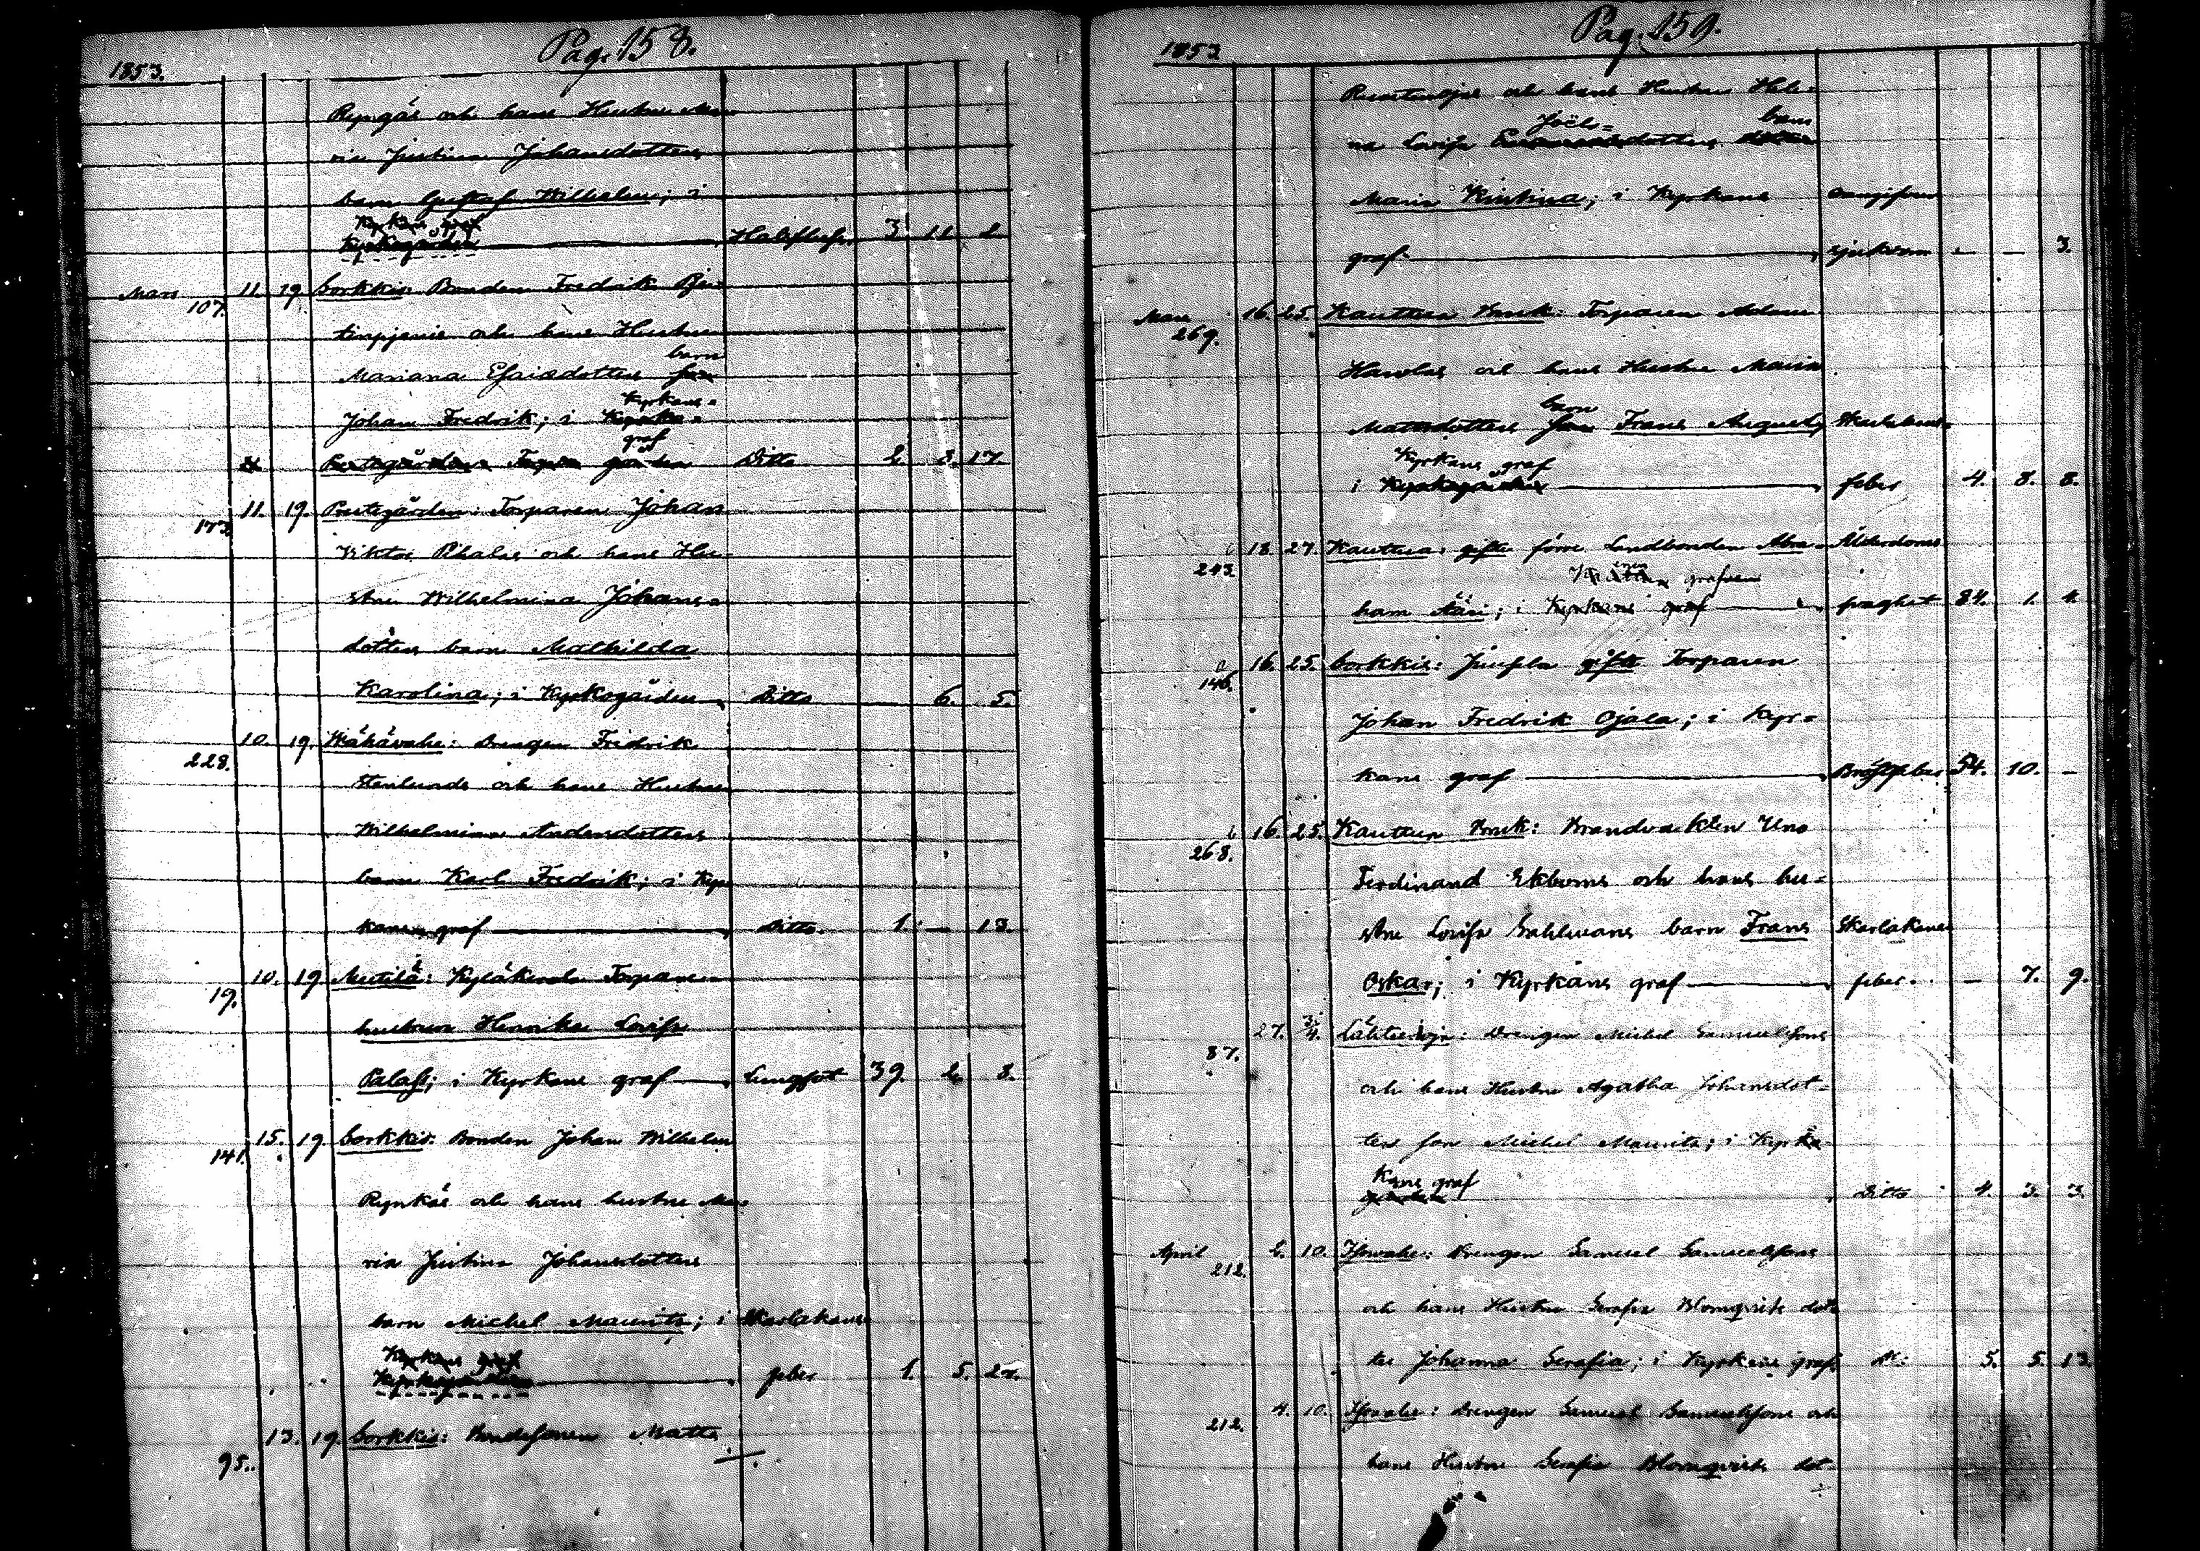 Pag. 158.
1853.
Rynkäs och hans Hustru Ma-
ria Justina Johansdotters
barn Gustaf Wilhelm; i
Kyrkans graf
Kyrkogården Halsfluss. 3. 11. 2.
Mars 107. 11. 19. Sorkkis Bonden Fredrik
och hans Hustru
barn
Mariana Esaiædotters son
Kyrkans
Johan Fredrik; i Kyrko-
graf
Prestgården Torpa gården Ditto 2. 3. 17.
173. 11. 19. Prestgården: Torparen Johan
Viktor och hans Hu-
stru Wilhelmina Johans-
dotters barn Mathilda
Karolina; i Kyrkogården Ditto 6. 5.
228. 10. 19. Wähävahe: Drengen Fredrik
Stenlunds och hans Hustru
Wilhelmina Andersdotters
barn Karl Fredrik; i Kyr-
kans graf Ditto. 1. — 13.
19. 10. 19. Mutila: Kyläkarols Torparen
hustrun Henrika Lovisa
Palass; i Kyrkans graf Lungsot 39. 2. 8.
141. 15. 19. Sorkkis: Bonden Johan Wilhelm
Rynkäs och hans hustru Ma-
ria Justina Johansdotters
barn Michel Maurits; i Skarlakans
Kyrkans graf
Kyrkogården feber 1. 5. 25.
95. 13. 19. Sorkkis: Bondesonen Matts
Pag. 159.
1853
och hans Hustru Hele-
Joëls- barn
na Lovisa dotters dotter
Maria Kristina; i Kyrkans
graf sjukdom — — 3.
Mars 269. 16. 25. Kauttua Bruk: Torparen Adam
Harolas och hans Hustru Maria
barn
Matsdotters son Frans August, Skarlakans-
Kyrkans graf
i Kyrkogården feber 4. 8. 8.
243. 18. 27. Kauttua: gifte förre Landbonden Abra- Ålderdoms
grafven
ham Ääri; i Kyrkans graf svaghet 84. 1. 4.
146. 16. 25. Sorkkis: Inhysta gifte Torparen
Johan Fredrik Ojala; i Kyr-
kans graf Bröstfeber 54. 10. —
268. 16. 25. Kauttua Bruk: Brandvakten Uno
Ferdinand Ekboms och hans hu-
stru Lovisa Sahlmans barn Frans Skarlakans
Oskar; i Kyrkans graf feber. — 7. 9.
87. 27. 3/4. Lähteenoja: Drengen Michel Samuelssons
och hans Hustru Agatha Johansdot-
ters son Michel Maurits; i Kyrko
Kans graf
gården Ditto 4. 3. 3.
April 212. 2. 10. Isovahe: Drengen Samuel Samuelssons
och hans Hustru Serafia Blomqvists dot-
ter Johanna Serafia; i Kyrkans graf. D:o 5. 5. 13.
212. 4. 10. Isovahe: Drengen Samuel Samuelssons och
hans Hustru Serafia Blomqvists dot-